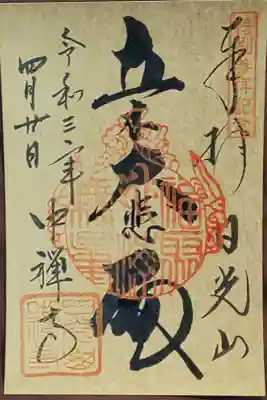 奉拝 日光山
立木大悲殿
令和三年 中禅寺
四月廿日